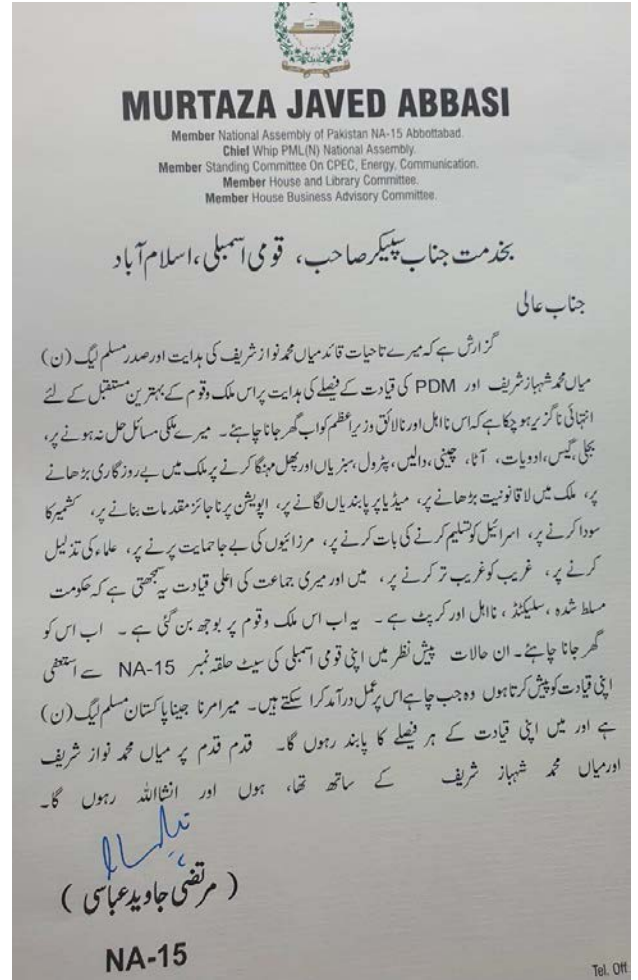 MURTAZA JAVED ABBASI
Member National Assembly of Pakistan NA-15 Abbottabad.
Chief Whip PML(N) National Assembly.
Member Standing Committee On CPEC, Energy, Communication.
Member House and Library Committee.
Member House Business Advisory Committee.
بخدمت جناب سپیکر صاحب، قومی اسمبلی، اسلام آباد
جناب عالی
گزارش ہے کہ میرے تاحیات قائد میاں محمد نواز شریف کی ہدایت اور صدر مسلم لیگ (ن)
میاں محمد شہباز شریف اور PDM کی قیادت کے فیصلے کی ہدایت پر اس ملک وقوم کے بہترین مستقبل کے لئے
انتہائی ناگزیر ہو چکا ہے کہ اس نااہل اور نالائق وزیراعظم کو اب گھر جانا چاہئے۔ میرے ملکی مسائل حل نہ ہونے پر،
بجلی، گیس، ادویات، آٹا، چینی، دالیں، پٹرول، سبزیاں اور پھل مہنگا کرنے پر ملک میں بے روزگاری بڑھانے
پر، ملک میں لاقانونیت بڑھانے پر، میڈیا پر پابندیاں لگانے پر، اپوزیشن پر ناجائز مقدمات بنانے پر، کشمیر کا
سودا کرنے پر، اسرائیل کو تسلیم کرنے کی بات کرنے پر، مرزائیوں کی بے جا حمایت پرنے پر، علماء کی تذلیل
کرنے پر، غریب کو غریب تر کرنے پر، میں اور میری جماعت کی اعلی قیادت یہ سمجھتی ہے کہ حکومت
مسلط شدہ، سلیکٹڈ، نااہل اور کرپٹ ہے۔ یہ اب اس ملک وقوم پر بوجھ بن گئی ہے۔ اب اس کو
گھر جانا چاہئے۔ ان حالات پیش نظر میں اپنی قومی اسمبلی کی سیٹ حلقہ نمبر NA-15 سے استعفی
اپنی قیادت کو پیش کرتا ہوں وہ جب چاہے اس پر عمل درآمد کرا سکتے ہیں۔ میرا مرنا جینا پاکستان مسلم لیگ (ن)
ہے اور میں اپنی قیادت کے ہر فیصلے کا پابند رہوں گا۔ قدم قدم پر میاں محمد نواز شریف
اور میاں محمد شہباز شریف کے ساتھ تھا، ہوں اور انشااللہ رہوں گا۔
( مرتضیٰ جاوید عباسی )
NA-15
Tel. Off